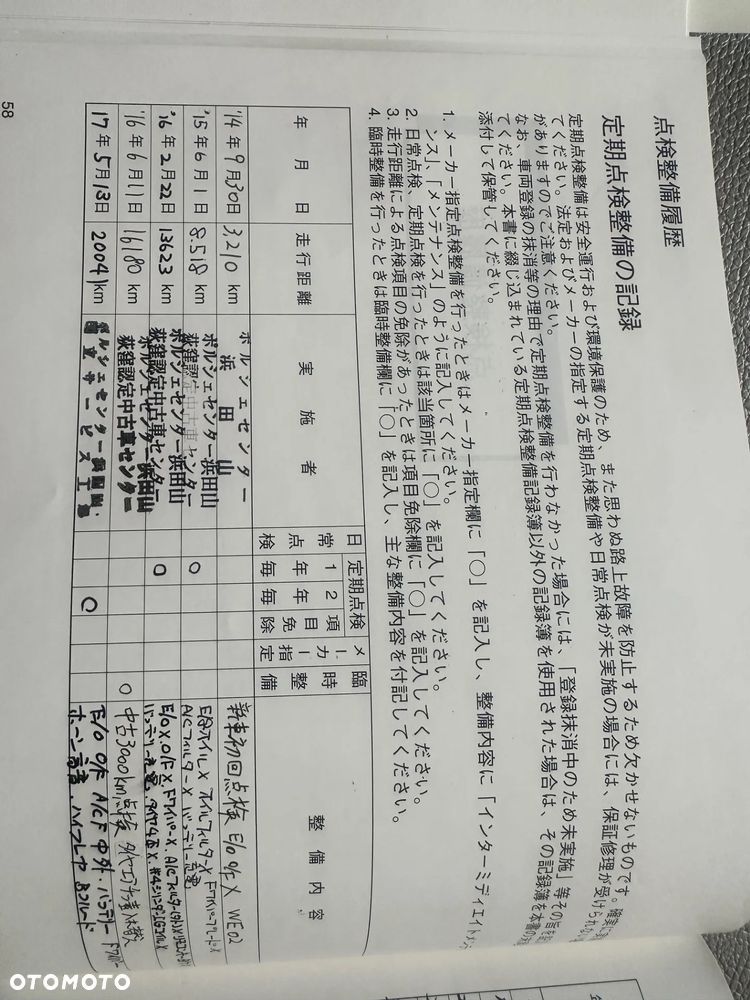 点検整備履歴
定期点検整備の記録
定期点検整備は安全運行および環境保護のため、また思わぬ路上故障を防止するため欠かせないものです。確実に
てください。法定およびメーカーの指定する定期点検整備や日常点検が未実施の場合には、保証修理が受けられない
がありますのでご注意ください。
なお、車両登録の抹消等の理由で定期点検整備を行わなかった場合には、「登録抹消中のため未実施」等その旨を
てください。本書に綴じ込まれている定期点検整備記録簿以外の記録簿を使用された場合は、その記録簿を本書の
添付して保管してください。
1. メーカー指定点検整備を行ったときはメーカー指定欄に「○」を記入し、整備内容に「インターミディエイトメンテナ
ンス」、「メンテナンス」のように記入してください。
2. 日常点検、定期点検を行ったときは該当箇所に「○」を記入してください。
3. 走行距離による点検項目の免除があったときは項目免除欄に「○」を記入してください。
4. 臨時整備を行ったときは臨時整備欄に「○」を記入し、主な整備内容を付記してください。
年 月 日 走行距離 実施者 日常点検 定期点検 1年毎 2年毎 項目免除 メーカー指定 臨時整備 整備内容
'14年9月30日 3,210 km ポルシェセンター浜田山 新車初回点検 E/O O/F X WE02
'15年6月1日 8,518 km ポルシェセンター浜田山 荻窪認定中古車センター ○ オイルフィルターX A/CフィルターX
'16年2月22日 13623 km ポルシェセンター浜田山 荻窪認定中古車センター ○ E/O X. O/F X. FワイパーX
'16年6月11日 16180 km ポルシェセンター浜田山 荻窪認定中古車センター ○ 中古3000km点検
17年5月13日 20041 km ポルシェセンター サービス工場 ○ E/O O/F A/CF 中外 バッテリー Fワイパー
58
OTOMOTO